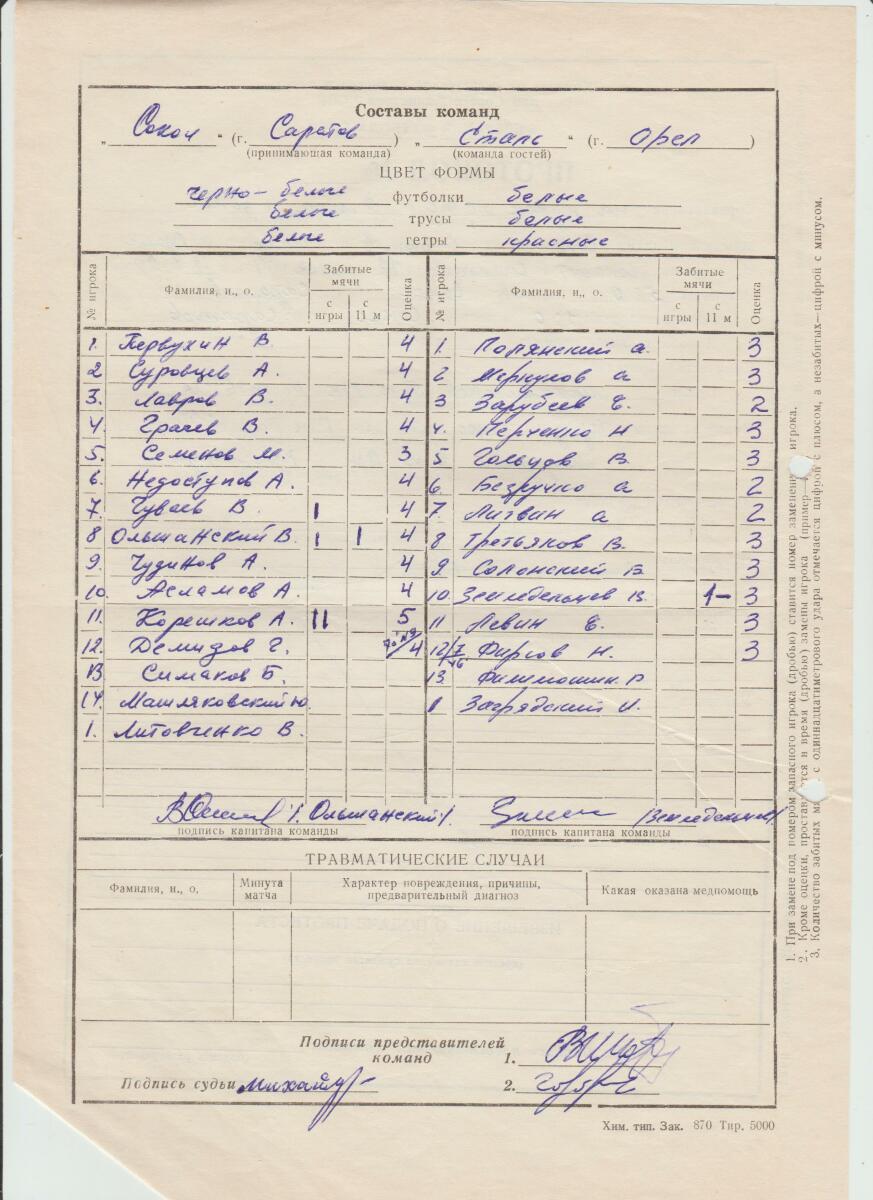 Составы команд
„ Сокол " (г. Саратов ) „ Сталь " (г. Орел )
(принимающая команда) (команда гостей)
ЦВЕТ ФОРМЫ
черно-белые футболки белые
белые трусы белые
белые гетры красные
№ игрока Фамилия, и., о. Забитые мячи с игры с 11 м Оценка № игрока Фамилия, и., о. Забитые мячи с игры с 11 м Оценка
1. Первухин В 4 1. Полянский а. 3
2 Суровцев А. 4 2 Меркулов а 3
3. Лавров В. 4 3 Зарубеев Е. 2
4. Грачев В. 4 4. Перченко Н 3
5. Семенов М. 3 5 Гольцов В. 3
6. Недоступов А. 4 6. Безручко а 2
7. Чуваев В. I 4 7. Литвин а 2
8 Ольшанский В. I I 4 8 Третьяков В. 3
9. Чудинов А. 4 9 Солонский В. 3
10. Асламов А. 4 10. Земледельцев В. 1- 3
11. Корешков А. II 5 11 Левин Е. 3
12. Демидов Г. 4 12/7 Фирсов Н. 3
13 Симаков Б. 13.
14. Машляковский Ю 1 Загрядский И.
1. Литовченко В.
/. Ольшанский/.
подпись капитана команды подпись капитана команды
ТРАВМАТИЧЕСКИЕ СЛУЧАИ
Фамилия, и., о. Минута матча Характер повреждения, причины, предварительный диагноз Какая оказана медпомощь
Подписи представителей команд 1.
Подпись судьи 2.
Хим. тип. Зак. 870 Тир. 5000
1. При замене под номером запасного игрока (дробью) ставится номер замененного игрока.
2. Кроме оценки, проставляется и время (дробью) замены игрока (пример
3. Количество забитых мячей с одиннадцатиметрового удара отмечается цифрой с плюсом, а незабитых—цифрой с минусом.